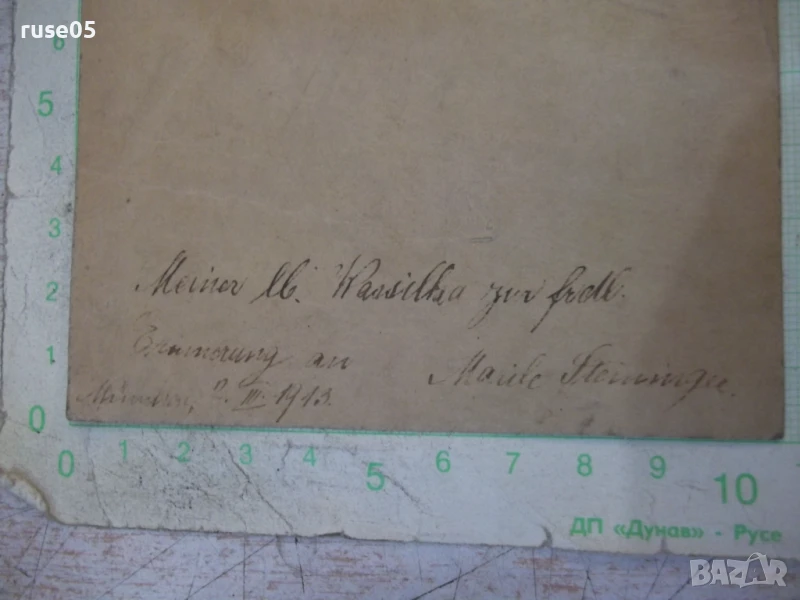 ruse05
6
5
4
3
2
1
0
Meiner lb. Wassilka zur frdl.
Erinnerung an
München, 2. III. 1913.
0 1 2 3 4 5 6 7 8 9 10
ДП «Дунав» - Русе
BAZAR